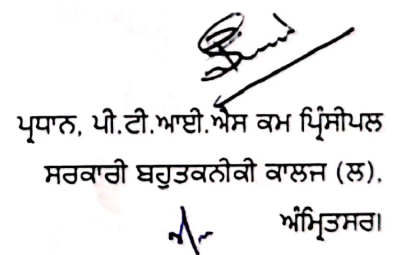 ਪ੍ਰਧਾਨ, ਪੀ.ਟੀ.ਆਈ.ਐਸ ਕਮ ਪ੍ਰਿੰਸੀਪਲ
ਸਰਕਾਰੀ ਬਹੁਤਕਨੀਕੀ ਕਾਲਜ (ਲ).
ਅੰਮ੍ਰਿਤਸਰ।